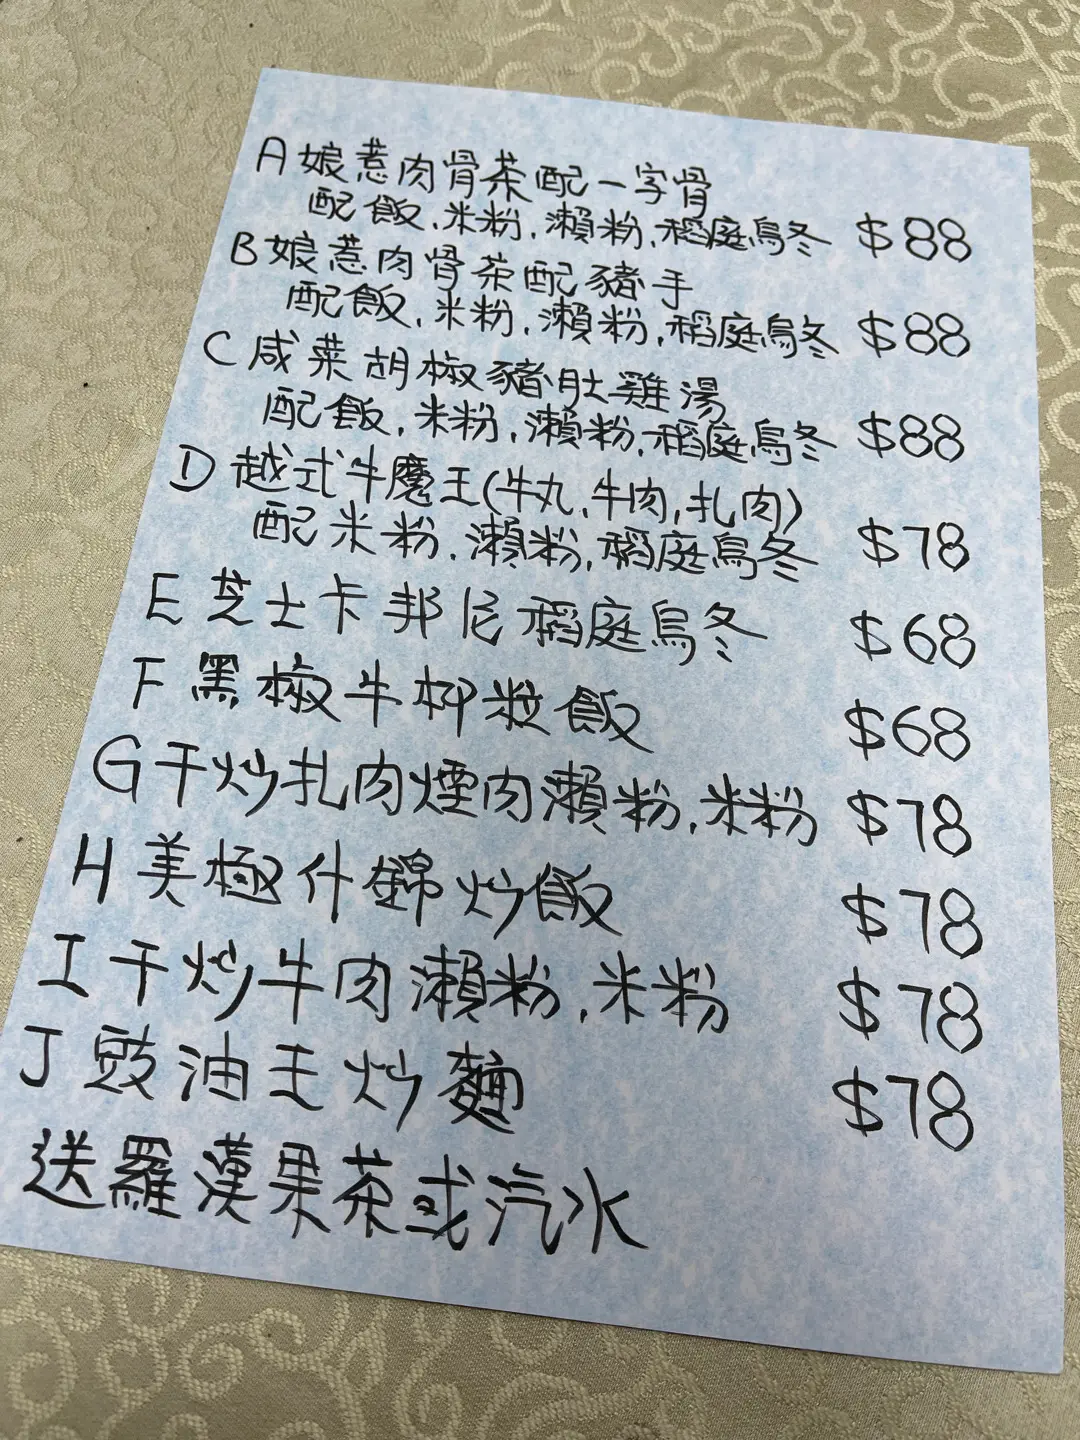 A 娘惹肉骨茶配一字骨
配飯.米粉.瀨粉.稻庭烏冬 $88
B 娘惹肉骨茶配豬手
配飯.米粉.瀨粉.稻庭烏冬 $88
C 咸菜胡椒豬肚雞湯
配飯.米粉.瀨粉.稻庭烏冬 $88
D 越式牛魔王(牛丸.牛肉,扎肉)
配米粉.瀨粉.稻庭烏冬 $78
E 芝士卡邦尼稻庭烏冬 $68
F 黑椒牛柳粒飯 $68
G 干炒扎肉煙肉瀨粉.米粉 $78
H 美極什錦炒飯 $78
I 干炒牛肉瀨粉.米粉 $78
J 豉油王炒麵 $78
送羅漢果茶或汽水